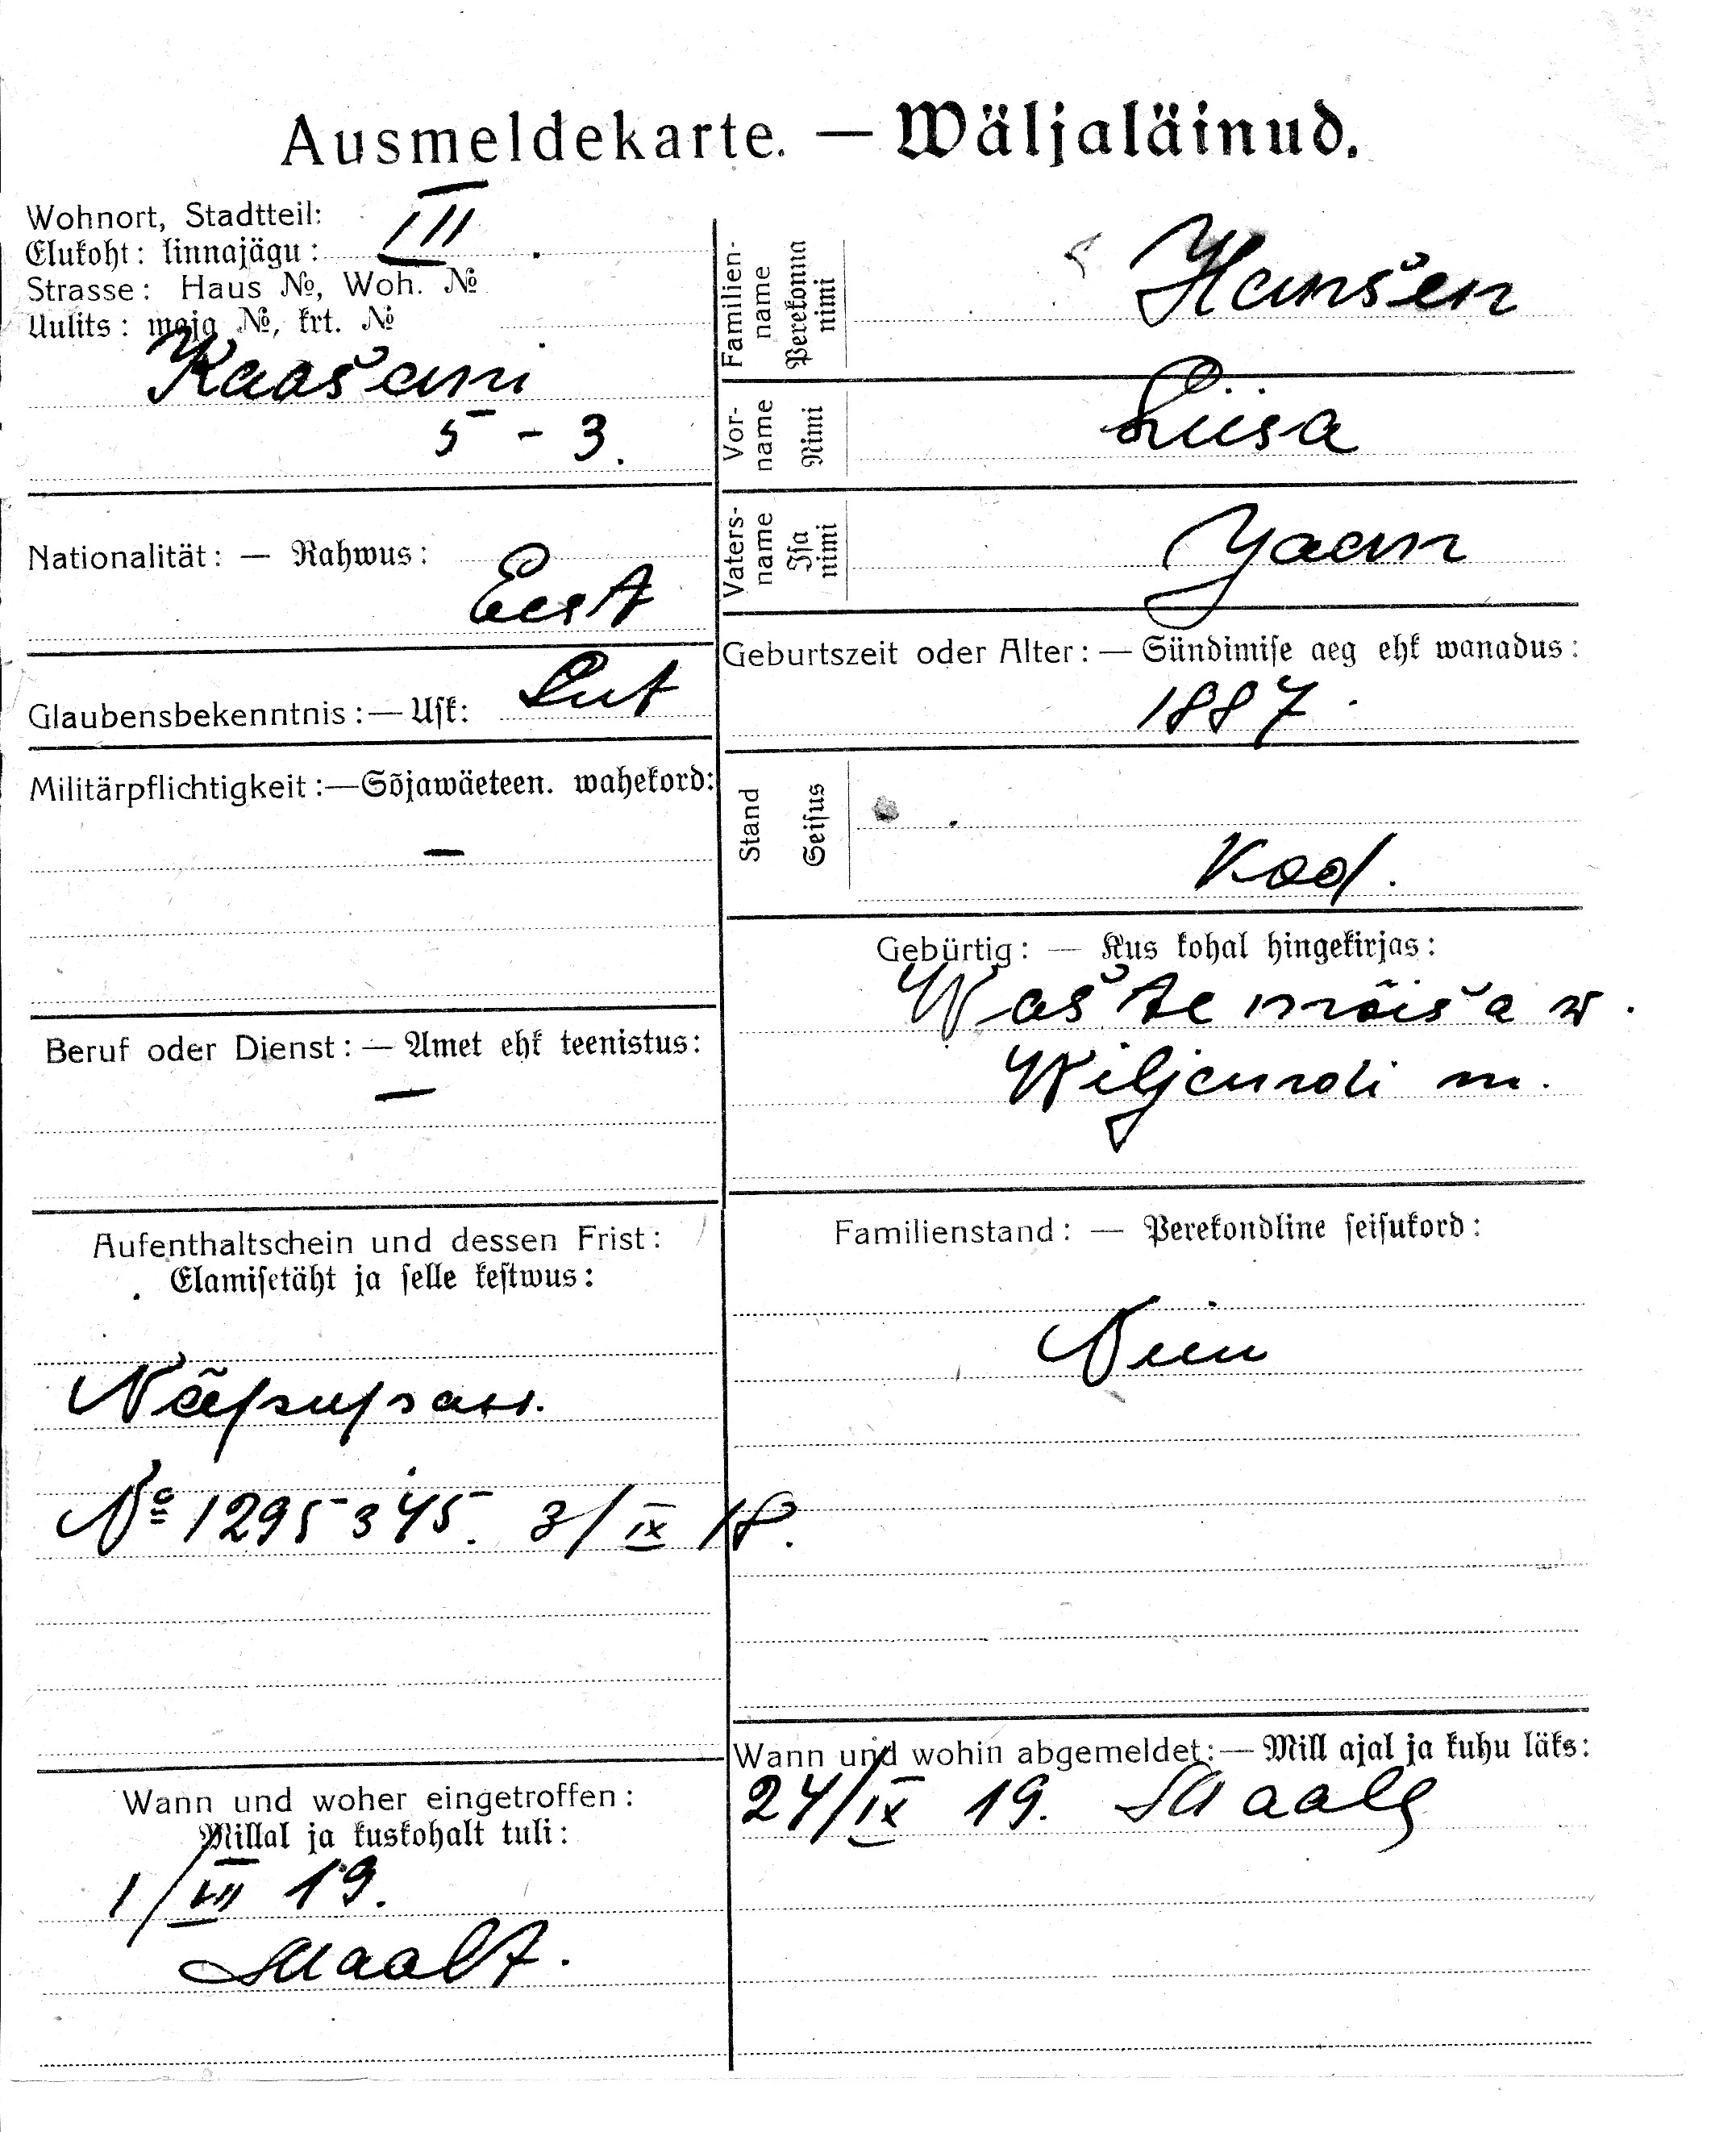 Ausmeldekarte. — Wäljaläinud.
Wohnort, Stadtteil:
Elukoht: linnajägu: III
Strasse: Haus №, Woh. №
Uulits: maja №, krt. №
Kaasani
5 - 3.
Nationalität: — Rahwus:
Eest
Glaubensbekenntnis: — Usk: Lut
Militärpflichtigkeit: — Sõjawäeteen. wahekord:
—
Beruf oder Dienst: — Amet ehk teenistus:
—
Aufenthaltschein und dessen Frist:
Elamisetäht ja selle kestwus:
Näpupass.
№ 1295345. 3/IX 18.
Wann und woher eingetroffen:
Millal ja kuskohalt tuli:
1/VII 19.
Maalt.
Familien-name
Perekonna nimi
Hansen
Vor-name
Nimi
Liisa
Vaters-name
Isa nimi
Jaan
Geburtszeit oder Alter: — Sündimise aeg ehk wanadus:
1887.
Stand
Seisus
Kod.
Gebürtig: — Kus kohal hingekirjas:
Wastemõisa w.
Wiljandi m.
Familienstand: — Perekondline seisukord:
Neiu
Wann und wohin abgemeldet: — Mill ajal ja kuhu läks:
24/IX 19. Maale